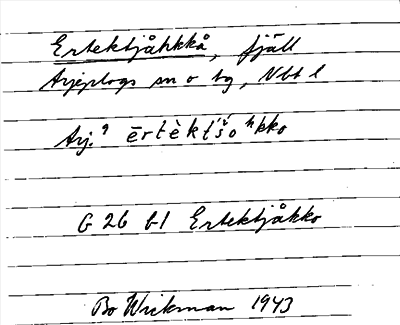 Ertektjåhkkå, fjäll
Arjeplogs sn o tg, Nbt l
Arj. ērtèkt'š́o ʰkko
G 26 b1 Ertektjåkko
Bo Wickman 1943